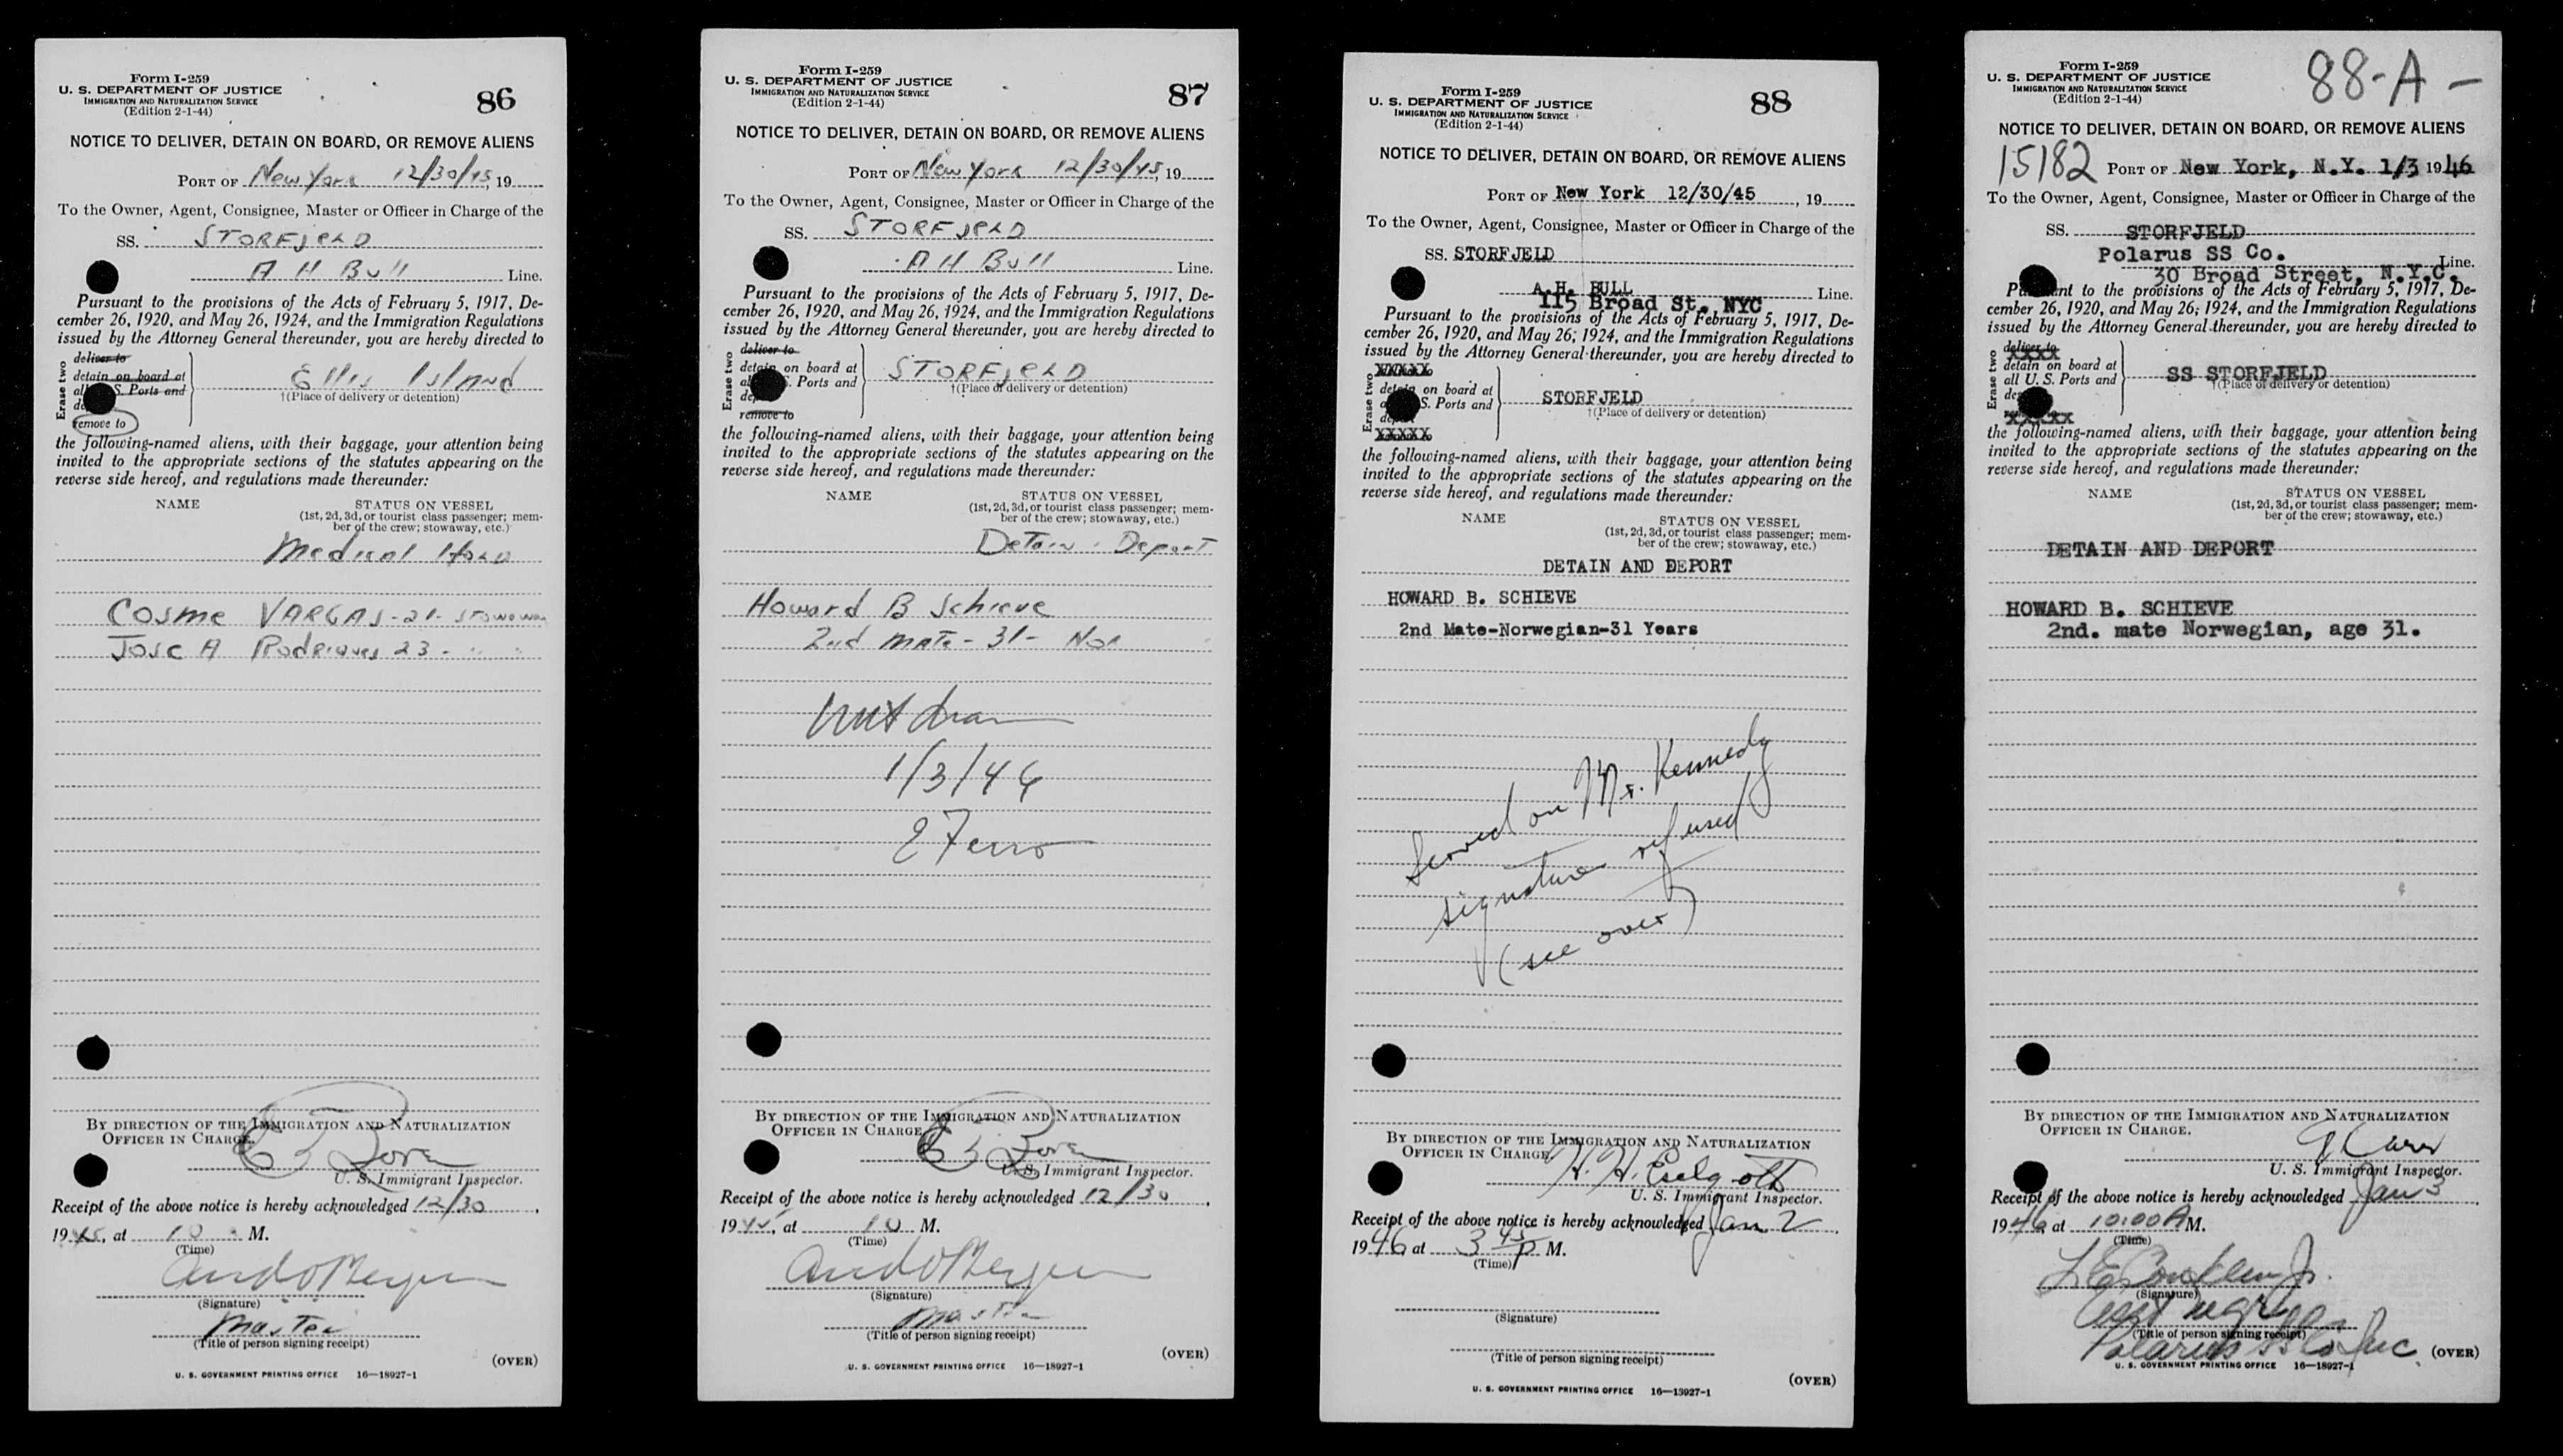 Form I-259
U. S. DEPARTMENT OF JUSTICE
IMMIGRATION AND NATURALIZATION SERVICE
(Edition 2-1-44)
86
NOTICE TO DELIVER, DETAIN ON BOARD, OR REMOVE ALIENS
PORT OF New York 12/30/45, 19
To the Owner, Agent, Consignee, Master or Officer in Charge of the
SS. STORFJELD
A H Bull Line.
Pursuant to the provisions of the Acts of February 5, 1917, De-
cember 26, 1920, and May 26, 1924, and the Immigration Regulations
issued by the Attorney General thereunder, you are hereby directed to
Erase two
deliver to
detain on board at
all S. Ports and
remove to
Ellis Island
†(Place of delivery or detention)
the following-named aliens, with their baggage, your attention being
invited to the appropriate sections of the statutes appearing on the
reverse side hereof, and regulations made thereunder:
NAME STATUS ON VESSEL
(1st, 2d, 3d, or tourist class passenger; mem-
ber of the crew; stowaway, etc.)
Medical Hold
Cosme VARGAS - 21 - Stowaway
Jose A Rodriques 23 - " "
BY DIRECTION OF THE IMMIGRATION AND NATURALIZATION
OFFICER IN CHARGE.
U. S. Immigrant Inspector.
Receipt of the above notice is hereby acknowledged 12/30,
1945, at 10 M.
(Time)
(Signature)
Master
(Title of person signing receipt)
(OVER)
U. S. GOVERNMENT PRINTING OFFICE 16—18927-1
Form I-259
U. S. DEPARTMENT OF JUSTICE
IMMIGRATION AND NATURALIZATION SERVICE
(Edition 2-1-44)
87
NOTICE TO DELIVER, DETAIN ON BOARD, OR REMOVE ALIENS
PORT OF New York 12/30/45, 19
To the Owner, Agent, Consignee, Master or Officer in Charge of the
SS. STORFJELD
A H Bull Line.
Pursuant to the provisions of the Acts of February 5, 1917, De-
cember 26, 1920, and May 26, 1924, and the Immigration Regulations
issued by the Attorney General thereunder, you are hereby directed to
Erase two
deliver to
detain on board at
S. Ports and
remove to
STORFJELD
†(Place of delivery or detention)
the following-named aliens, with their baggage, your attention being
invited to the appropriate sections of the statutes appearing on the
reverse side hereof, and regulations made thereunder:
NAME STATUS ON VESSEL
(1st, 2d, 3d, or tourist class passenger; mem-
ber of the crew; stowaway, etc.)
Detain . Deport
Howard B Schieve
2nd mate - 31 - Nor
1/3/46
E Ferro
BY DIRECTION OF THE IMMIGRATION AND NATURALIZATION
OFFICER IN CHARGE
U. S. Immigrant Inspector.
Receipt of the above notice is hereby acknowledged 12/30,
1945, at 10 M.
(Time)
(Signature)
Master
(Title of person signing receipt)
(OVER)
U. S. GOVERNMENT PRINTING OFFICE 16—18927-1
Form I-259
U. S. DEPARTMENT OF JUSTICE
IMMIGRATION AND NATURALIZATION SERVICE
(Edition 2-1-44)
88
NOTICE TO DELIVER, DETAIN ON BOARD, OR REMOVE ALIENS
PORT OF New York 12/30/45, 19
To the Owner, Agent, Consignee, Master or Officer in Charge of the
SS. STORFJELD
A.H. BULL
115 Broad St. NYC Line.
Pursuant to the provisions of the Acts of February 5, 1917, De-
cember 26, 1920, and May 26, 1924, and the Immigration Regulations
issued by the Attorney General thereunder, you are hereby directed to
Erase two
XXXXX
detain on board at
S. Ports and
XXXXX
STORFJELD
†(Place of delivery or detention)
the following-named aliens, with their baggage, your attention being
invited to the appropriate sections of the statutes appearing on the
reverse side hereof, and regulations made thereunder:
NAME STATUS ON VESSEL
(1st, 2d, 3d, or tourist class passenger; mem-
ber of the crew; stowaway, etc.)
DETAIN AND DEPORT
HOWARD B. SCHIEVE
2nd Mate-Norwegian-31 Years
Served on Mr. Kennedy
signature refused
(see over)
BY DIRECTION OF THE IMMIGRATION AND NATURALIZATION
OFFICER IN CHARGE.
U. S. Immigrant Inspector.
Receipt of the above notice is hereby acknowledged Jan 2,
1946 at 3 45 P M.
(Time)
(Signature)
(Title of person signing receipt)
(OVER)
U. S. GOVERNMENT PRINTING OFFICE 16—18927-1
Form I-259
U. S. DEPARTMENT OF JUSTICE
IMMIGRATION AND NATURALIZATION SERVICE
(Edition 2-1-44)
88-A-
NOTICE TO DELIVER, DETAIN ON BOARD, OR REMOVE ALIENS
15182 PORT OF New York, N.Y. 1/3 1946
To the Owner, Agent, Consignee, Master or Officer in Charge of the
SS. STORFJELD
Polarus SS Co.
30 Broad Street, N.Y.C. Line.
Pursuant to the provisions of the Acts of February 5, 1917, De-
cember 26, 1920, and May 26, 1924, and the Immigration Regulations
issued by the Attorney General thereunder, you are hereby directed to
Erase two
deliver to
detain on board at
all U. S. Ports and
SS STORFJELD
†(Place of delivery or detention)
the following-named aliens, with their baggage, your attention being
invited to the appropriate sections of the statutes appearing on the
reverse side hereof, and regulations made thereunder:
NAME STATUS ON VESSEL
(1st, 2d, 3d, or tourist class passenger; mem-
ber of the crew; stowaway, etc.)
DETAIN AND DEPORT
HOWARD B. SCHIEVE
2nd. mate Norwegian, age 31.
BY DIRECTION OF THE IMMIGRATION AND NATURALIZATION
OFFICER IN CHARGE.
U. S. Immigrant Inspector.
Receipt of the above notice is hereby acknowledged Jan 3,
1946 at 10:00 A M.
(Time)
(Signature)
(Title of person signing receipt)
Polarus SS Co Inc
(OVER)
U. S. GOVERNMENT PRINTING OFFICE 16—18927-1